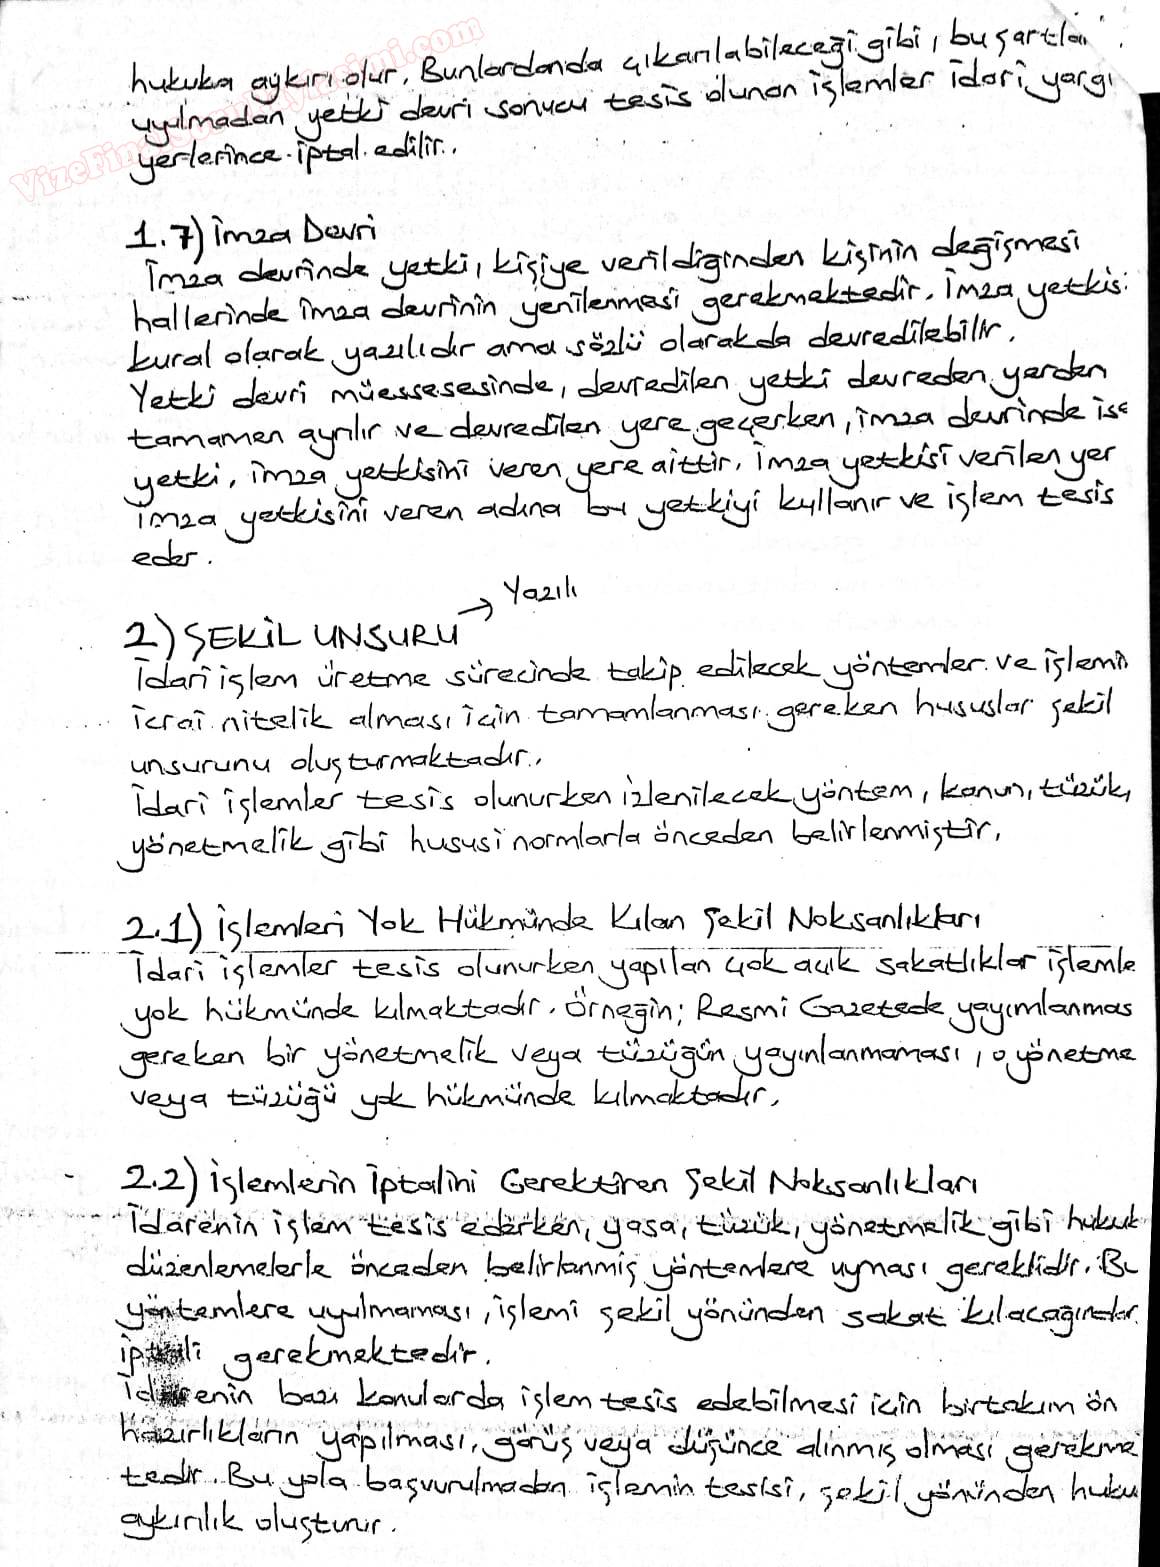 VizeFinalSoruPaylasimi.com
hukuka aykırı olur. Bunlardanda çıkarılabileceği gibi, bu şartla
uyulmadan yetki devri sonucu tesis olunan işlemler idari yargı
yerlerince iptal edilir.
1.7) İmza Devri
İmza devrinde yetki, kişiye verildiginden kişinin değişmesi
hallerinde imza devrinin yenilenmesi gerekmektedir. İmza yetkis
kural olarak yazılıdır ama sözlü olarakda devredilebilir.
Yetki devri müessesesinde, devredilen yetki devreden yerden
tamamen ayrılır ve devredilen yere geçerken, imza devrinde ise
yetki, imza yetkisini veren yere aittir. İmza yetkisi verilen yer
imza yetkisini veren adına bu yetkiyi kullanır ve işlem tesis
eder.
2) ŞEKİL UNSURU → Yazılı
İdari işlem üretme sürecinde takip edilecek yöntemler ve işlemin
icrai nitelik alması için tamamlanması gereken hususlar şekil
unsurunu oluşturmaktadır.
İdari işlemler tesis olunurken izlenilecek yöntem, kanun, tüzük,
yönetmelik gibi hususi normlarla önceden belirlenmiştir.
2.1) İşlemleri Yok Hükmünde Kılan Şekil Noksanlıkları
İdari işlemler tesis olunurken yapılan çok açık sakatlıklar işlemle
yok hükmünde kılmaktadır. Örneğin; Resmi Gazetede yayımlanmas
gereken bir yönetmelik veya tüzüğün yayınlanmaması, o yönetme
veya tüzüğü yok hükmünde kılmaktadır.
2.2) İşlemlerin İptalini Gerektiren Şekil Noksanlıkları
İdarenin işlem tesis ederken, yasa, tüzük, yönetmelik gibi hukuk
düzenlemelerle önceden belirlenmiş yöntemlere uyması gereklidir. Bu
yöntemlere uyulmaması, işlemi şekil yönünden sakat kılacağından
iptali gerekmektedir.
İdarenin bazı konularda işlem tesis edebilmesi için birtakım ön
hazırlıkların yapılması, görüş veya düşünce alınmış olması gerekme
tedir. Bu yola başvurulmadan işlemin tesisi, şekil yönünden huku
aykırılık oluşturur.